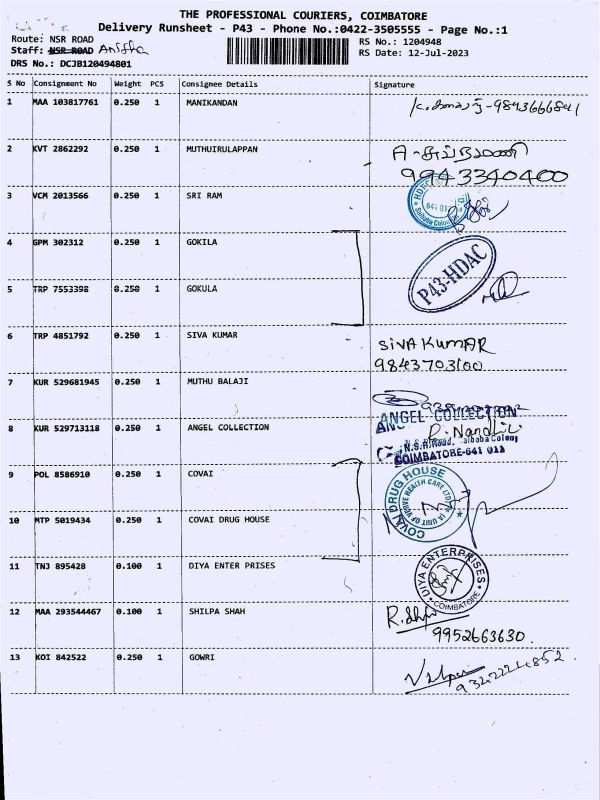 THE PROFESSIONAL COURIERS, COIMBATORE
Delivery Runsheet - P43 - Phone No.:0422-3505555 - Page No.:1
Route: NSR ROAD
RS No.: 1204948
Staff: NSR ROAD Anitha
RS Date: 12-Jul-2023
DRS No.: DCJB120494801
S No Consignment No Weight PCS Consignee Details Signature
1 MAA 103817761 0.250 1 MANIKANDAN -9843666841
2 KVT 2862292 0.250 1 MUTHUIRULAPPAN
9943340400
3 VCM 2013566 0.250 1 SRI RAM
4 GPM 302312 0.250 1 GOKILA
P43-HDAC
5 TRP 7553398 0.250 1 GOKULA
6 TRP 4851792 0.250 1 SIVA KUMAR SIVA KUMAR
9843703100
7 KUR 529681945 0.250 1 MUTHU BALAJI
8 KUR 529713118 0.250 1 ANGEL COLLECTION
ANGEL COLLECTION
N.S.R.Road, Saibaba Colony
COIMBATORE-641 011
9 POL 8586910 0.250 1 COVAI
COVAI DRUG HOUSE
10 MTP 5019434 0.250 1 COVAI DRUG HOUSE
11 TNJ 895428 0.100 1 DIYA ENTER PRISES
DIYA ENTERPRISES
COIMBATORE
12 MAA 293544467 0.100 1 SHILPA SHAH
9952663630.
13 KOI 842522 0.250 1 GOWRI